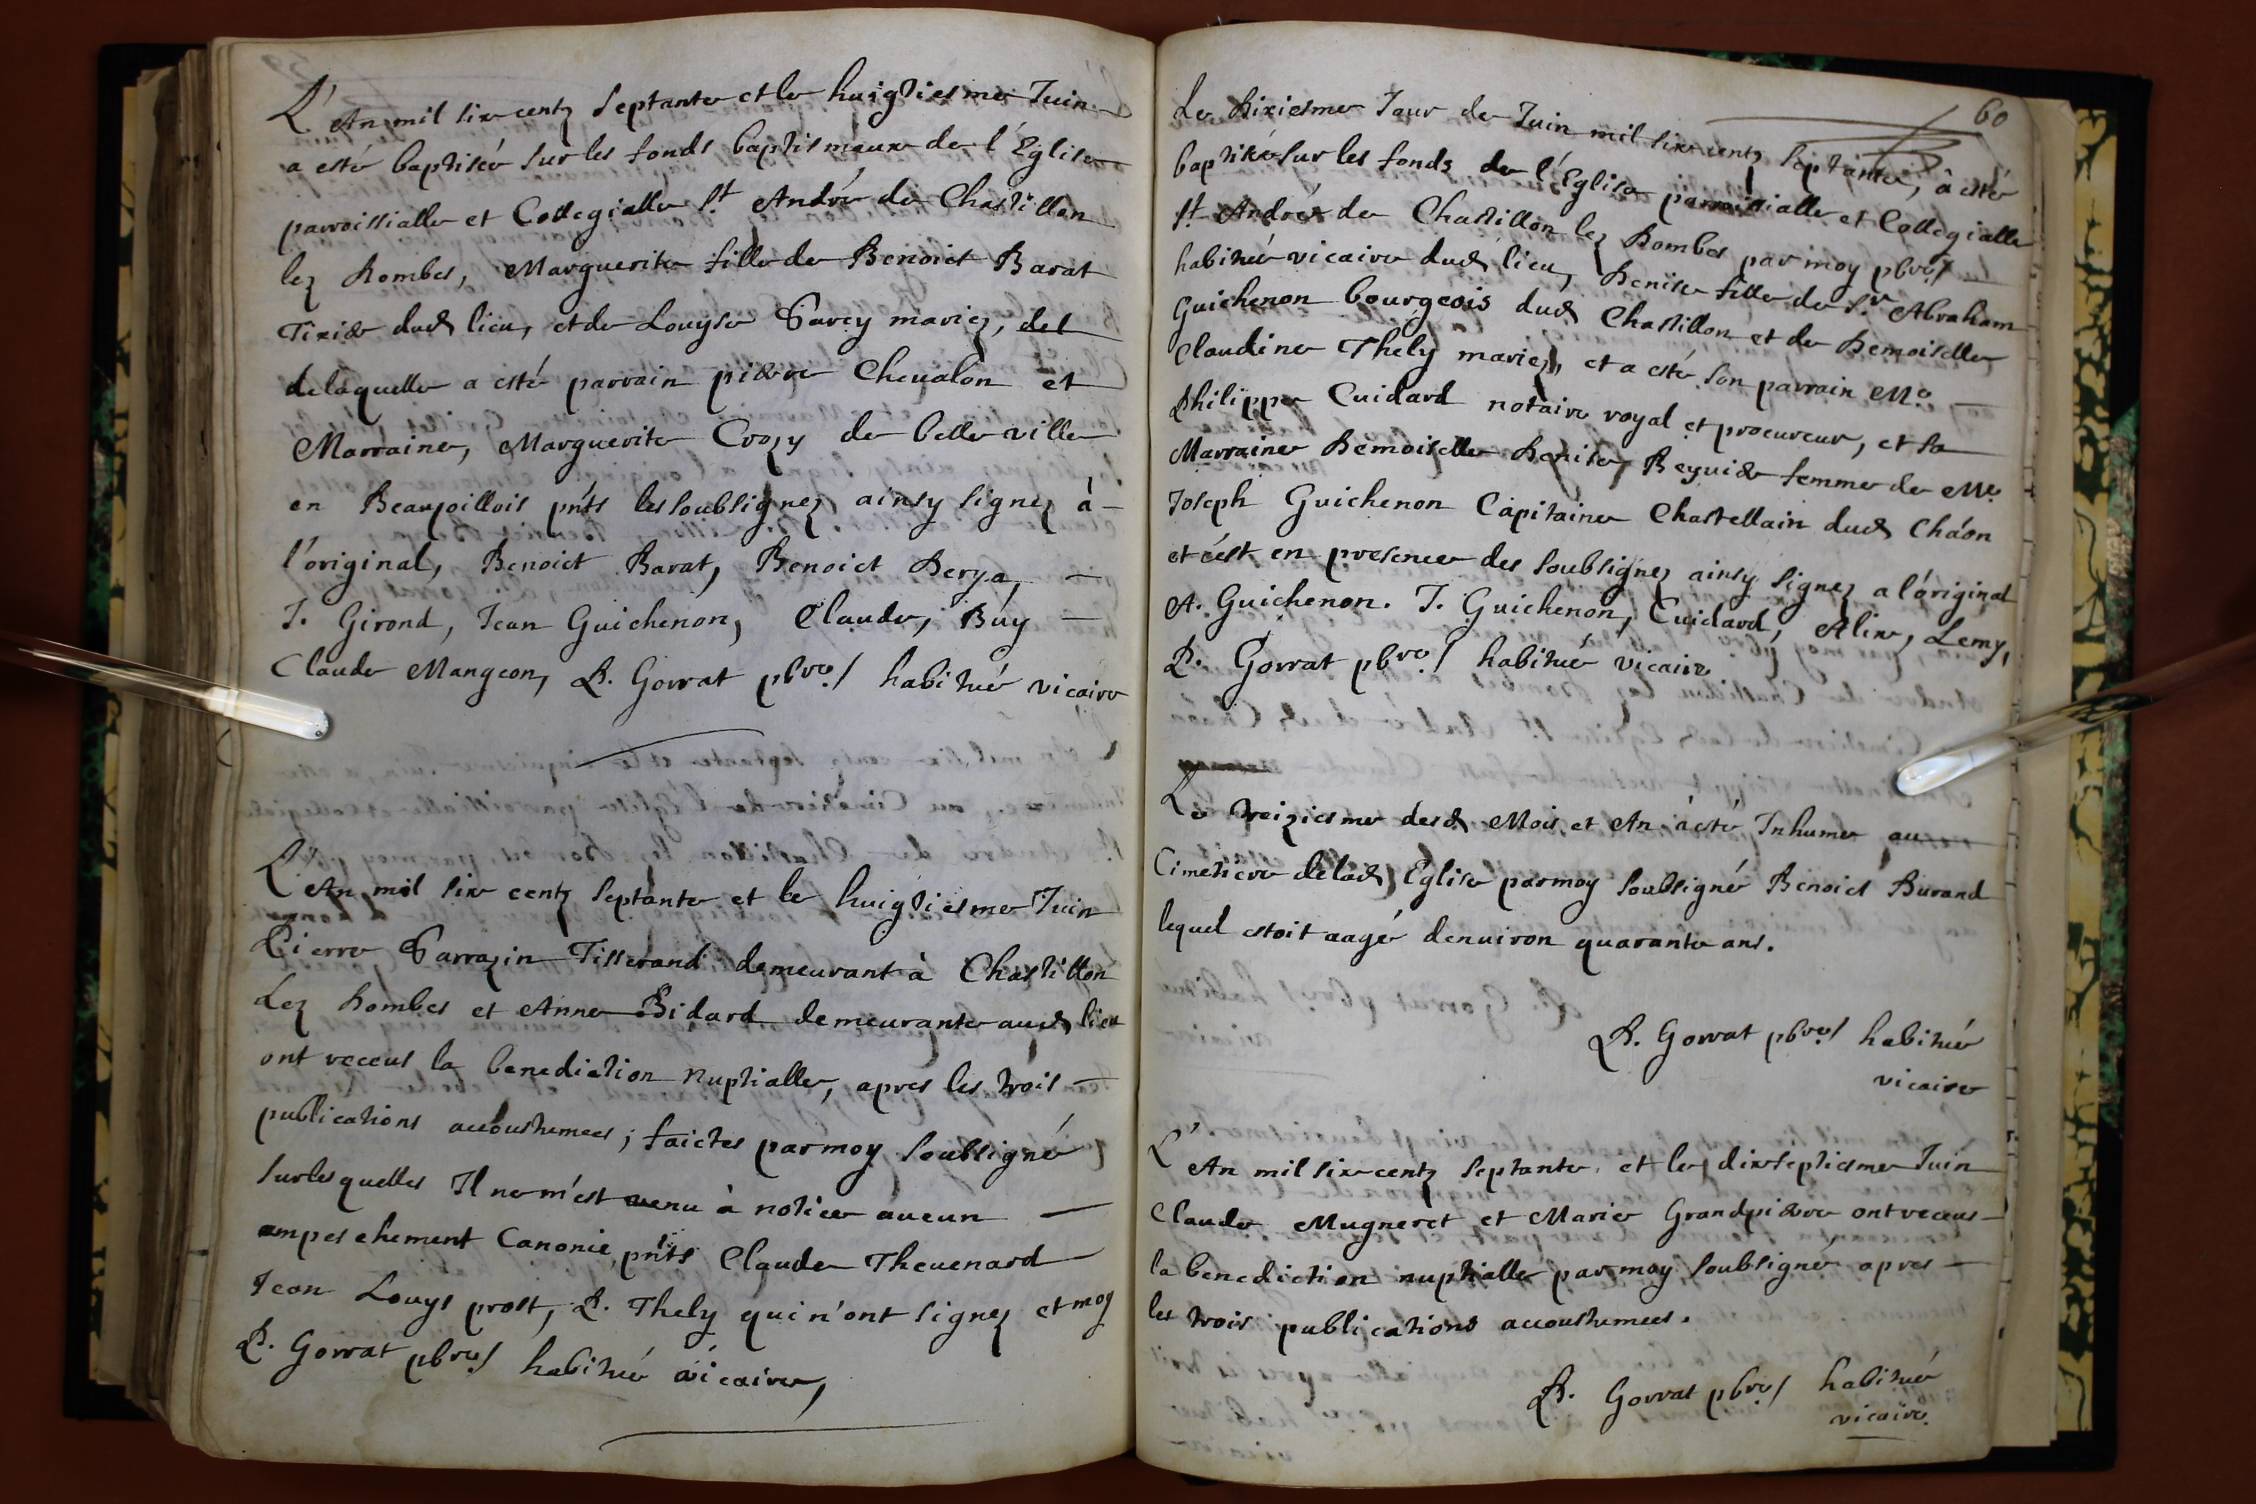 L'An mil six centz septante et le huigtiesme Juin
a esté baptisée sur les fonds baptismaux de l'Eglise
parroissialle et Collegialle St André de Chastillon
lez Dombes, Marguerite fille de Benoict Barat
Tixier dud lieu, et de Louyse Garcy mariez, de l
de laquelle a esté parrain pierre Cheualon et
Marraine, Marguerite Crozy de belle ville
en Beaujoillois pnts les soubsignez ainsy signez à
l'original, Benoict Barat, Benoict Berya,
J. Girond, Jean Guichenon, Claude, Buy
Claude Mangeon, P. Gorrat pbre habitué vicaire
L'An mil six centz septante et le huigtiesme Juin
Pierre Sarrazin Tisserand demeurant à Chastillon
Lez Dombes et Anne Bidard demeurante aud lieu
ont receus la benediction Nuptialle, apres les trois
publications accoustumees; faictes par moy soubsigné
surlesquelles Il ne m'est venu à notice aucun
empeschement Canonic, pnts Claude Theuenard
Jean Louys prost, P. Thely qui n'ont signez et moy
P. Gorrat pbre habitué vicaire,
60
Le Dixiesme Jour de Juin mil six centz septante, à esté
baptisé sur les fonds de l'Eglise parroissialle et Collegialle
St André de Chastillon lez Dombes par moy pbre
habitué vicaire dud lieu, Denise fille de Sr Abraham
Guichenon bourgeois dud Chastillon et de Demoiselle
Claudine Thely mariez, et a esté son parrain Me
Philippe Cuidard notaire royal et procureur, et sa
Marraine Demoiselle Denise Beguier femme de Me
Joseph Guichenon Capitaine Chastellain dud Cháon
et c'est en presence des soubsignez ainsy signez a l'original
A. Guichenon. J. Guichenon, Cuidard, Alix, Lemy,
P. Gorrat pbre habitué vicaire
Le treiziesme desd Mois et An à esté Inhumer au
Cimetiere delad Eglise par moy soubsigné Benoict Durand
lequel estoit aagé denuiron quarante ans.
P. Gorrat pbre habitué
vicaire
L'An mil six centz septante, et le dixseptiesme Juin
Claude Mugneret et Marie Grandpierre ont receus
la benediction nuptialle par moy soubsigné apres
les trois publications accoustumees.
P. Gorrat pbre habitué
vicaire